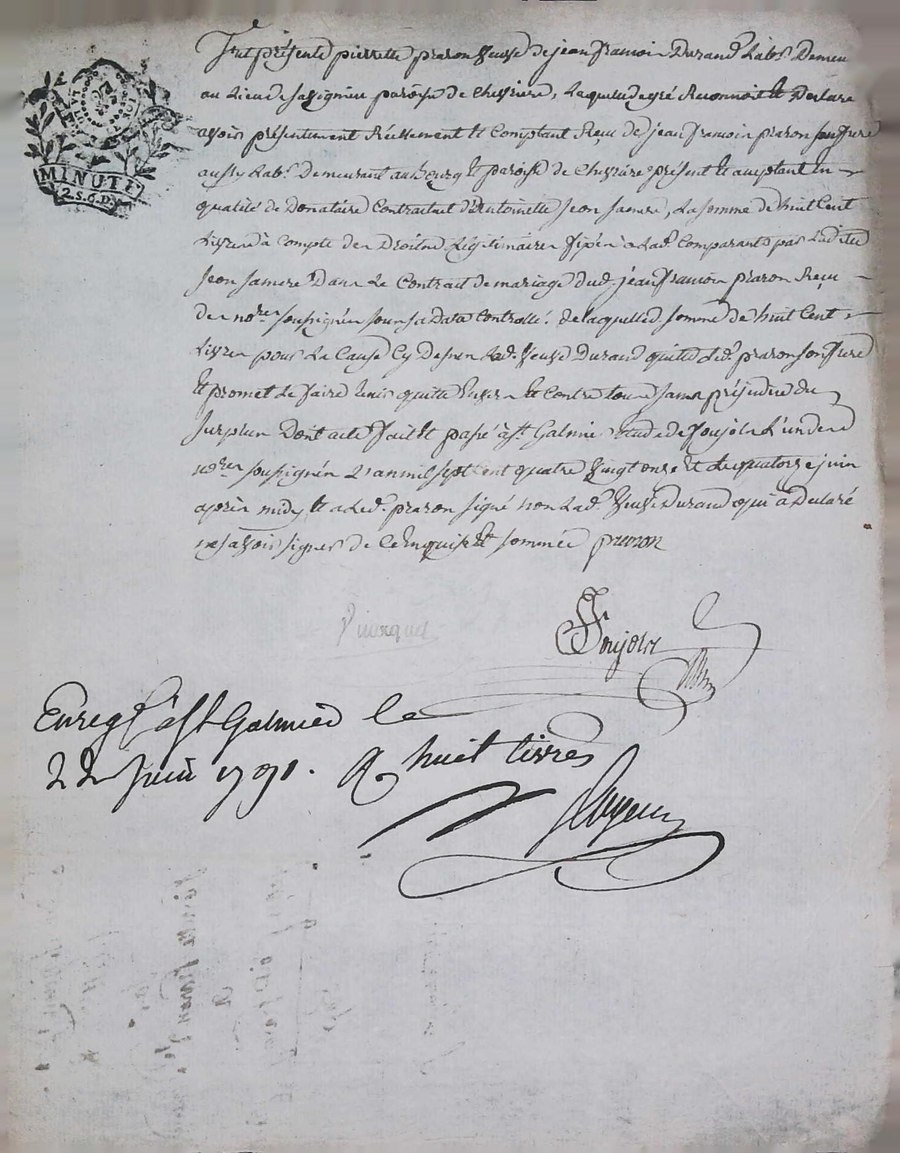 MINUTE
2. S. 6. D.
Fut présente pierrette praron veuve de jean francois Durand Labr. Demeu
au Lieu de sassignieu paroisse de chevriere, Laquelle de gré Reconnoit et Declare
avoir présentement Réellement et Comptant Reçu de jean francois praron son frere
aussy Labr. Demeurant au bourg et paroisse de chevriere présent et aceptant En
qualité de Donataire Contractuel d'Antoinette jean samere, La somme de huit Cent
Livres à Compte des Droits Légitimaires fixés a Lad. Comparante par Lad
jean samere Dans Le Contrait de mariage dud. jean francois praron Reçu
des nores soussignés sous sa Data Controllé. de laquelle somme de huit Cent
Livres pour La Cause Cy Dessus Lad. veuve Durand quite Led. praron son frere
Et promet Le faire tenir quitte Envers Et Contre tous sans préjudice du
surplus Dont acte fait Et passé à st Galmier Etude de soujols L'un des
nores soussignés L'an mil sept cent quatre vingt onze et Le quatorze juin
après midy Et a Led. praron signé non Lad. veuve Durand qui a Declaré
ne savoir signer de Ce Enquise Et sommée praron
Soujols
Enregé à St Galmier le
22 Juin 1791. R huit livres